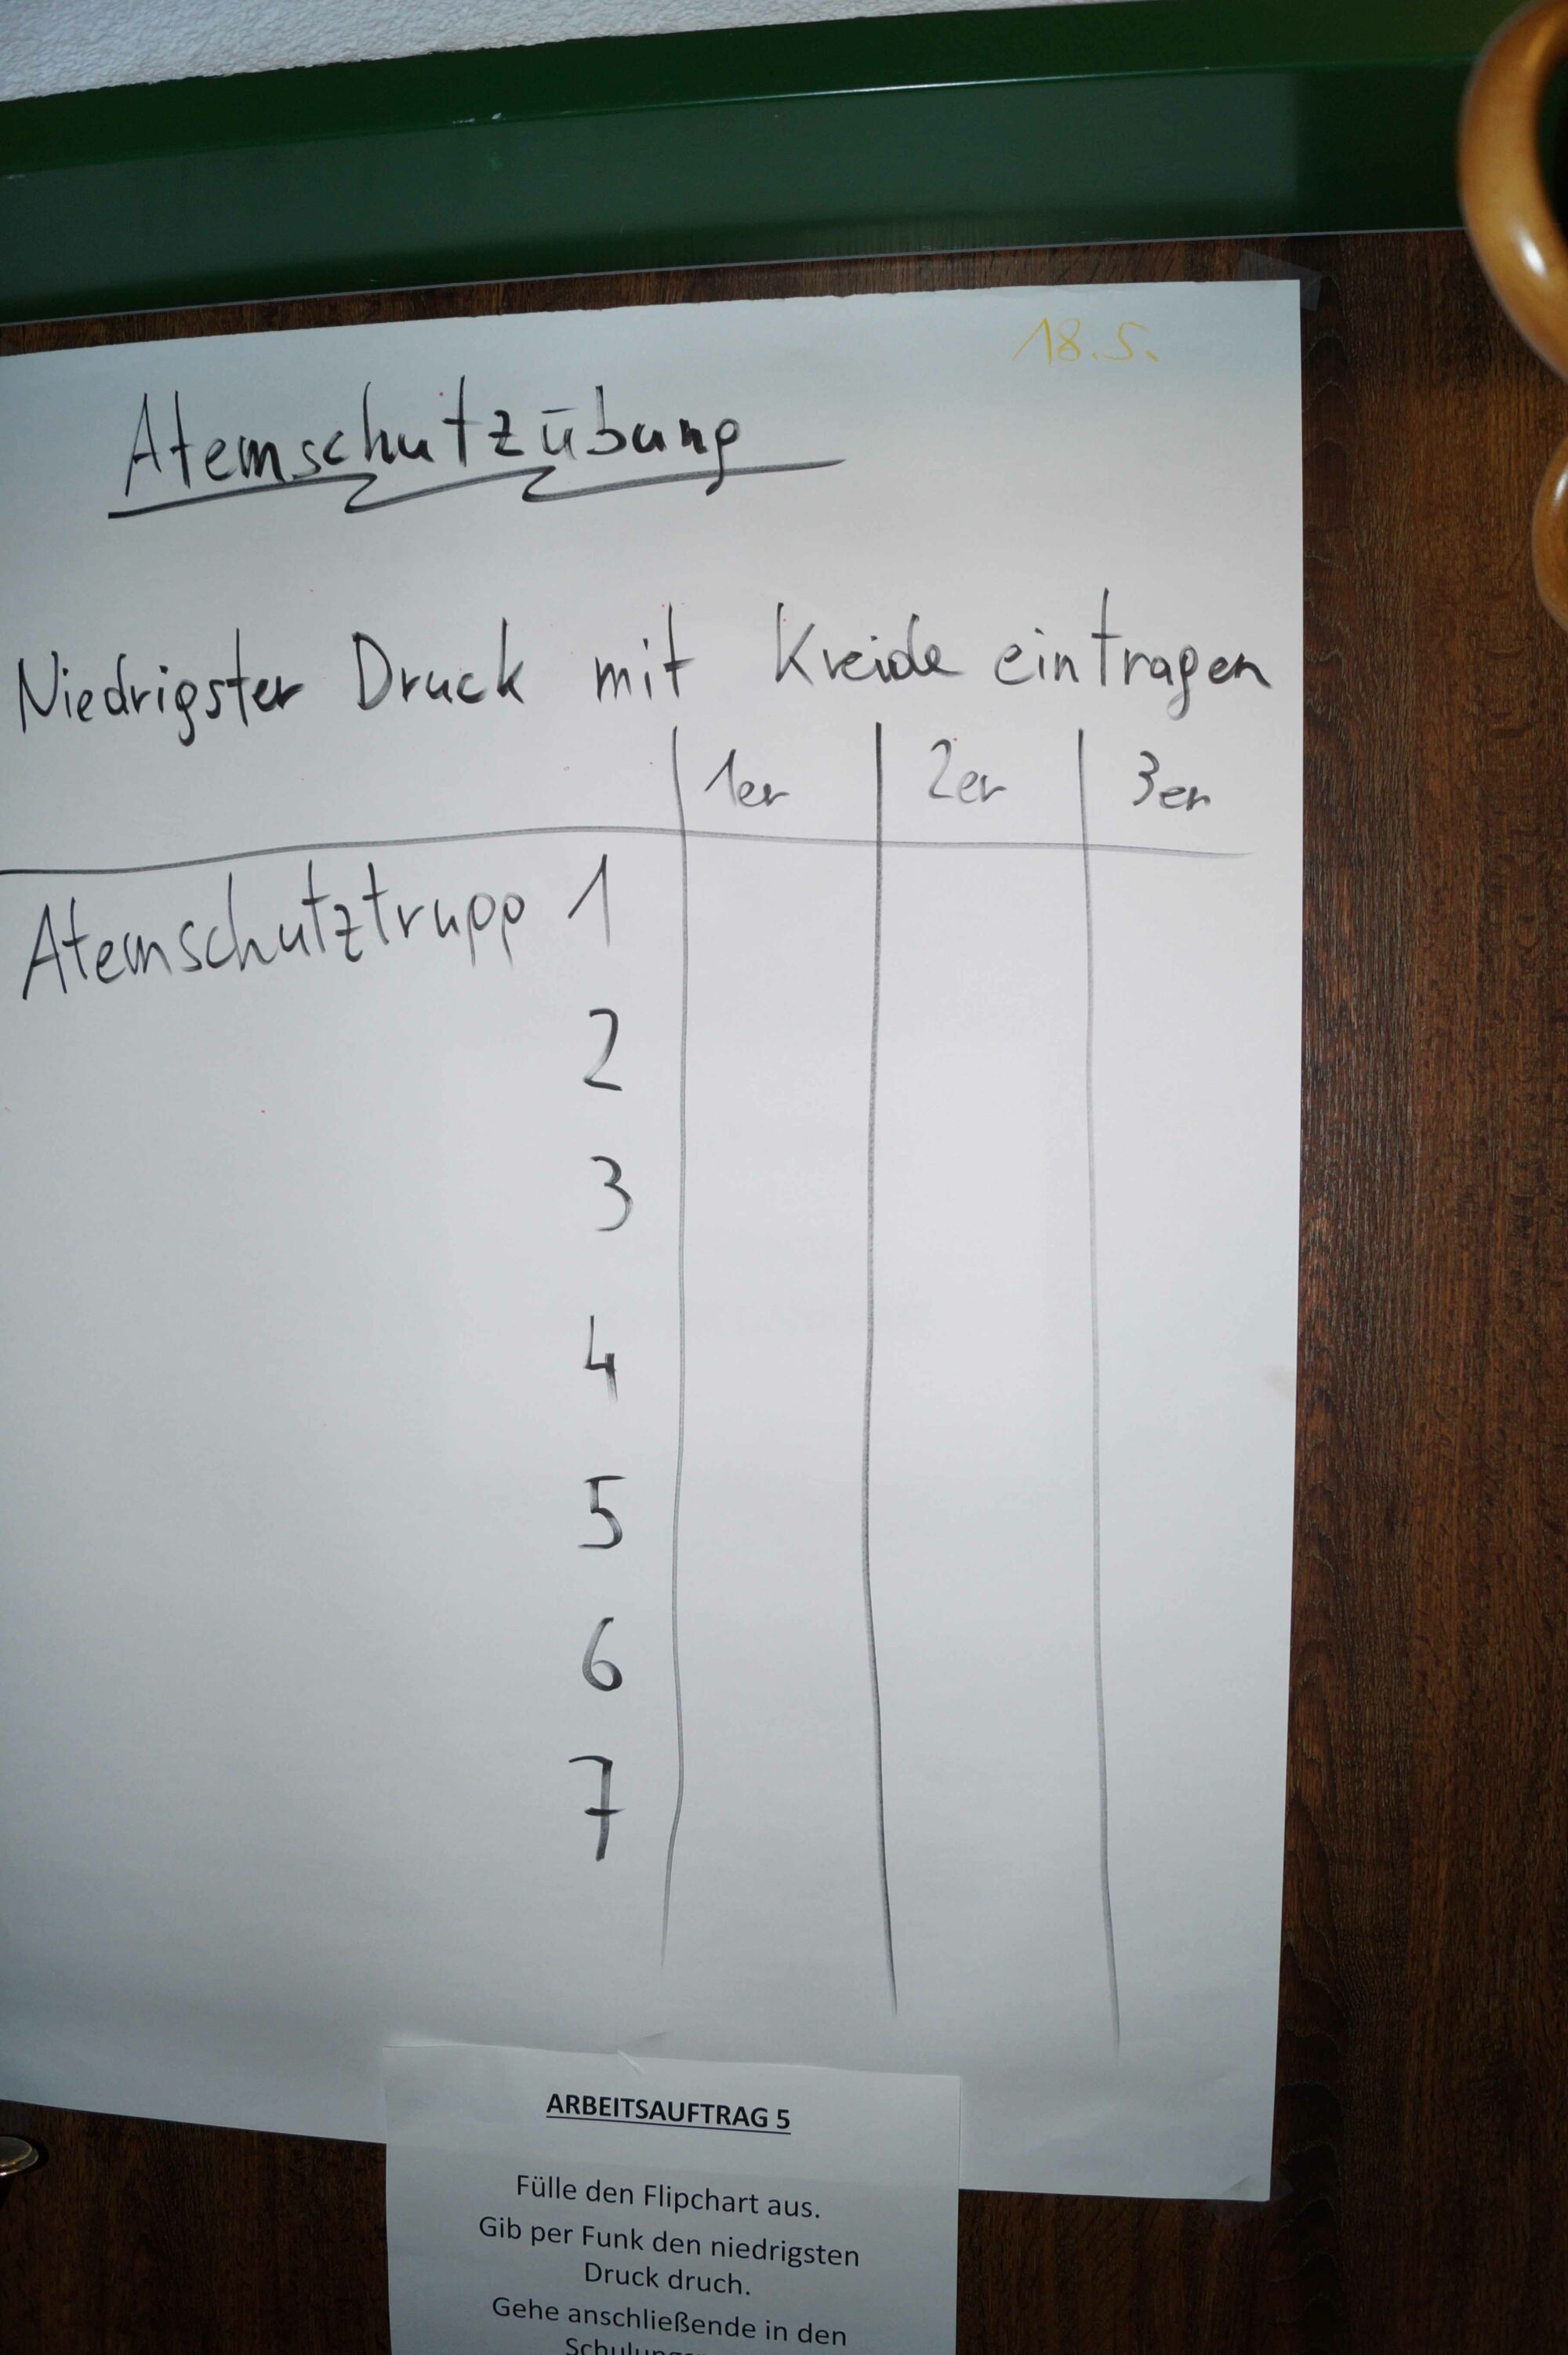 18.5.
Atemschutzübung
Niedrigster Druck mit Kreide eintragen
1er 2er 3er
Atemschutztrupp 1
2
3
4
5
6
7
ARBEITSAUFTRAG 5
Fülle den Flipchart aus.
Gib per Funk den niedrigsten
Druck druch.
Gehe anschließende in den